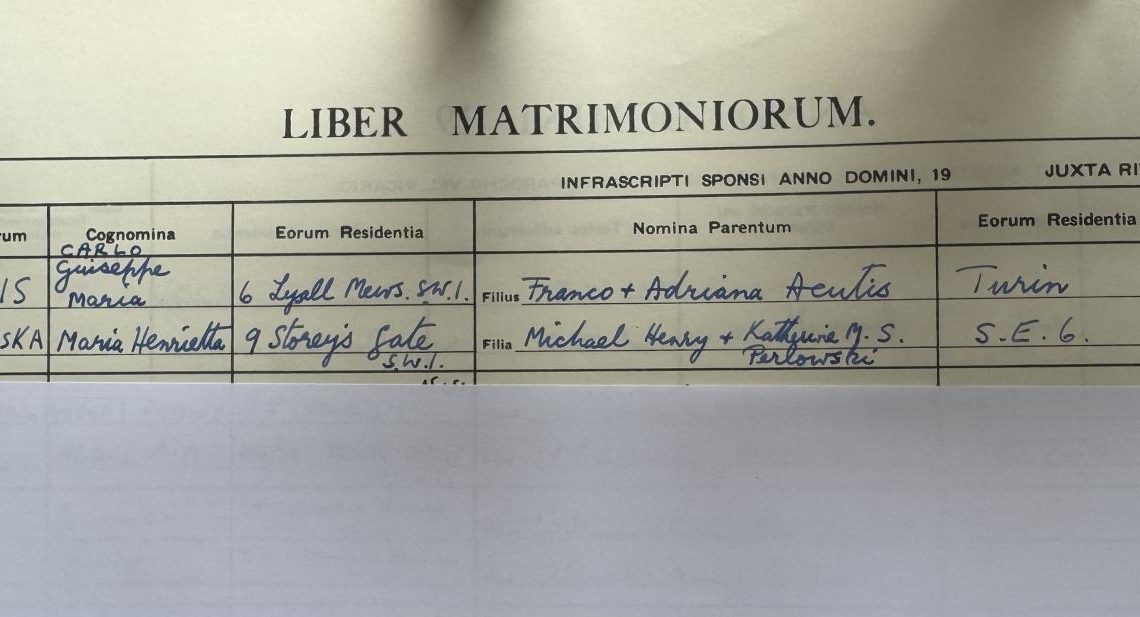 LIBER MATRIMONIORUM.
INFRASCRIPTI SPONSI ANNO DOMINI, 19 JUXTA RI
rum Cognomina Eorum Residentia Nomina Parentum Eorum Residentia
CARLO
Guiseppe
IS Maria 6 Lyall Mews. S.W.1. Filius Franco + Adriana Acutis Turin
SKA Maria Henrietta 9 Storey's Gate Filia Michael Henry + Katherine M. S. S.E.6.
S.W.1. Perlowski